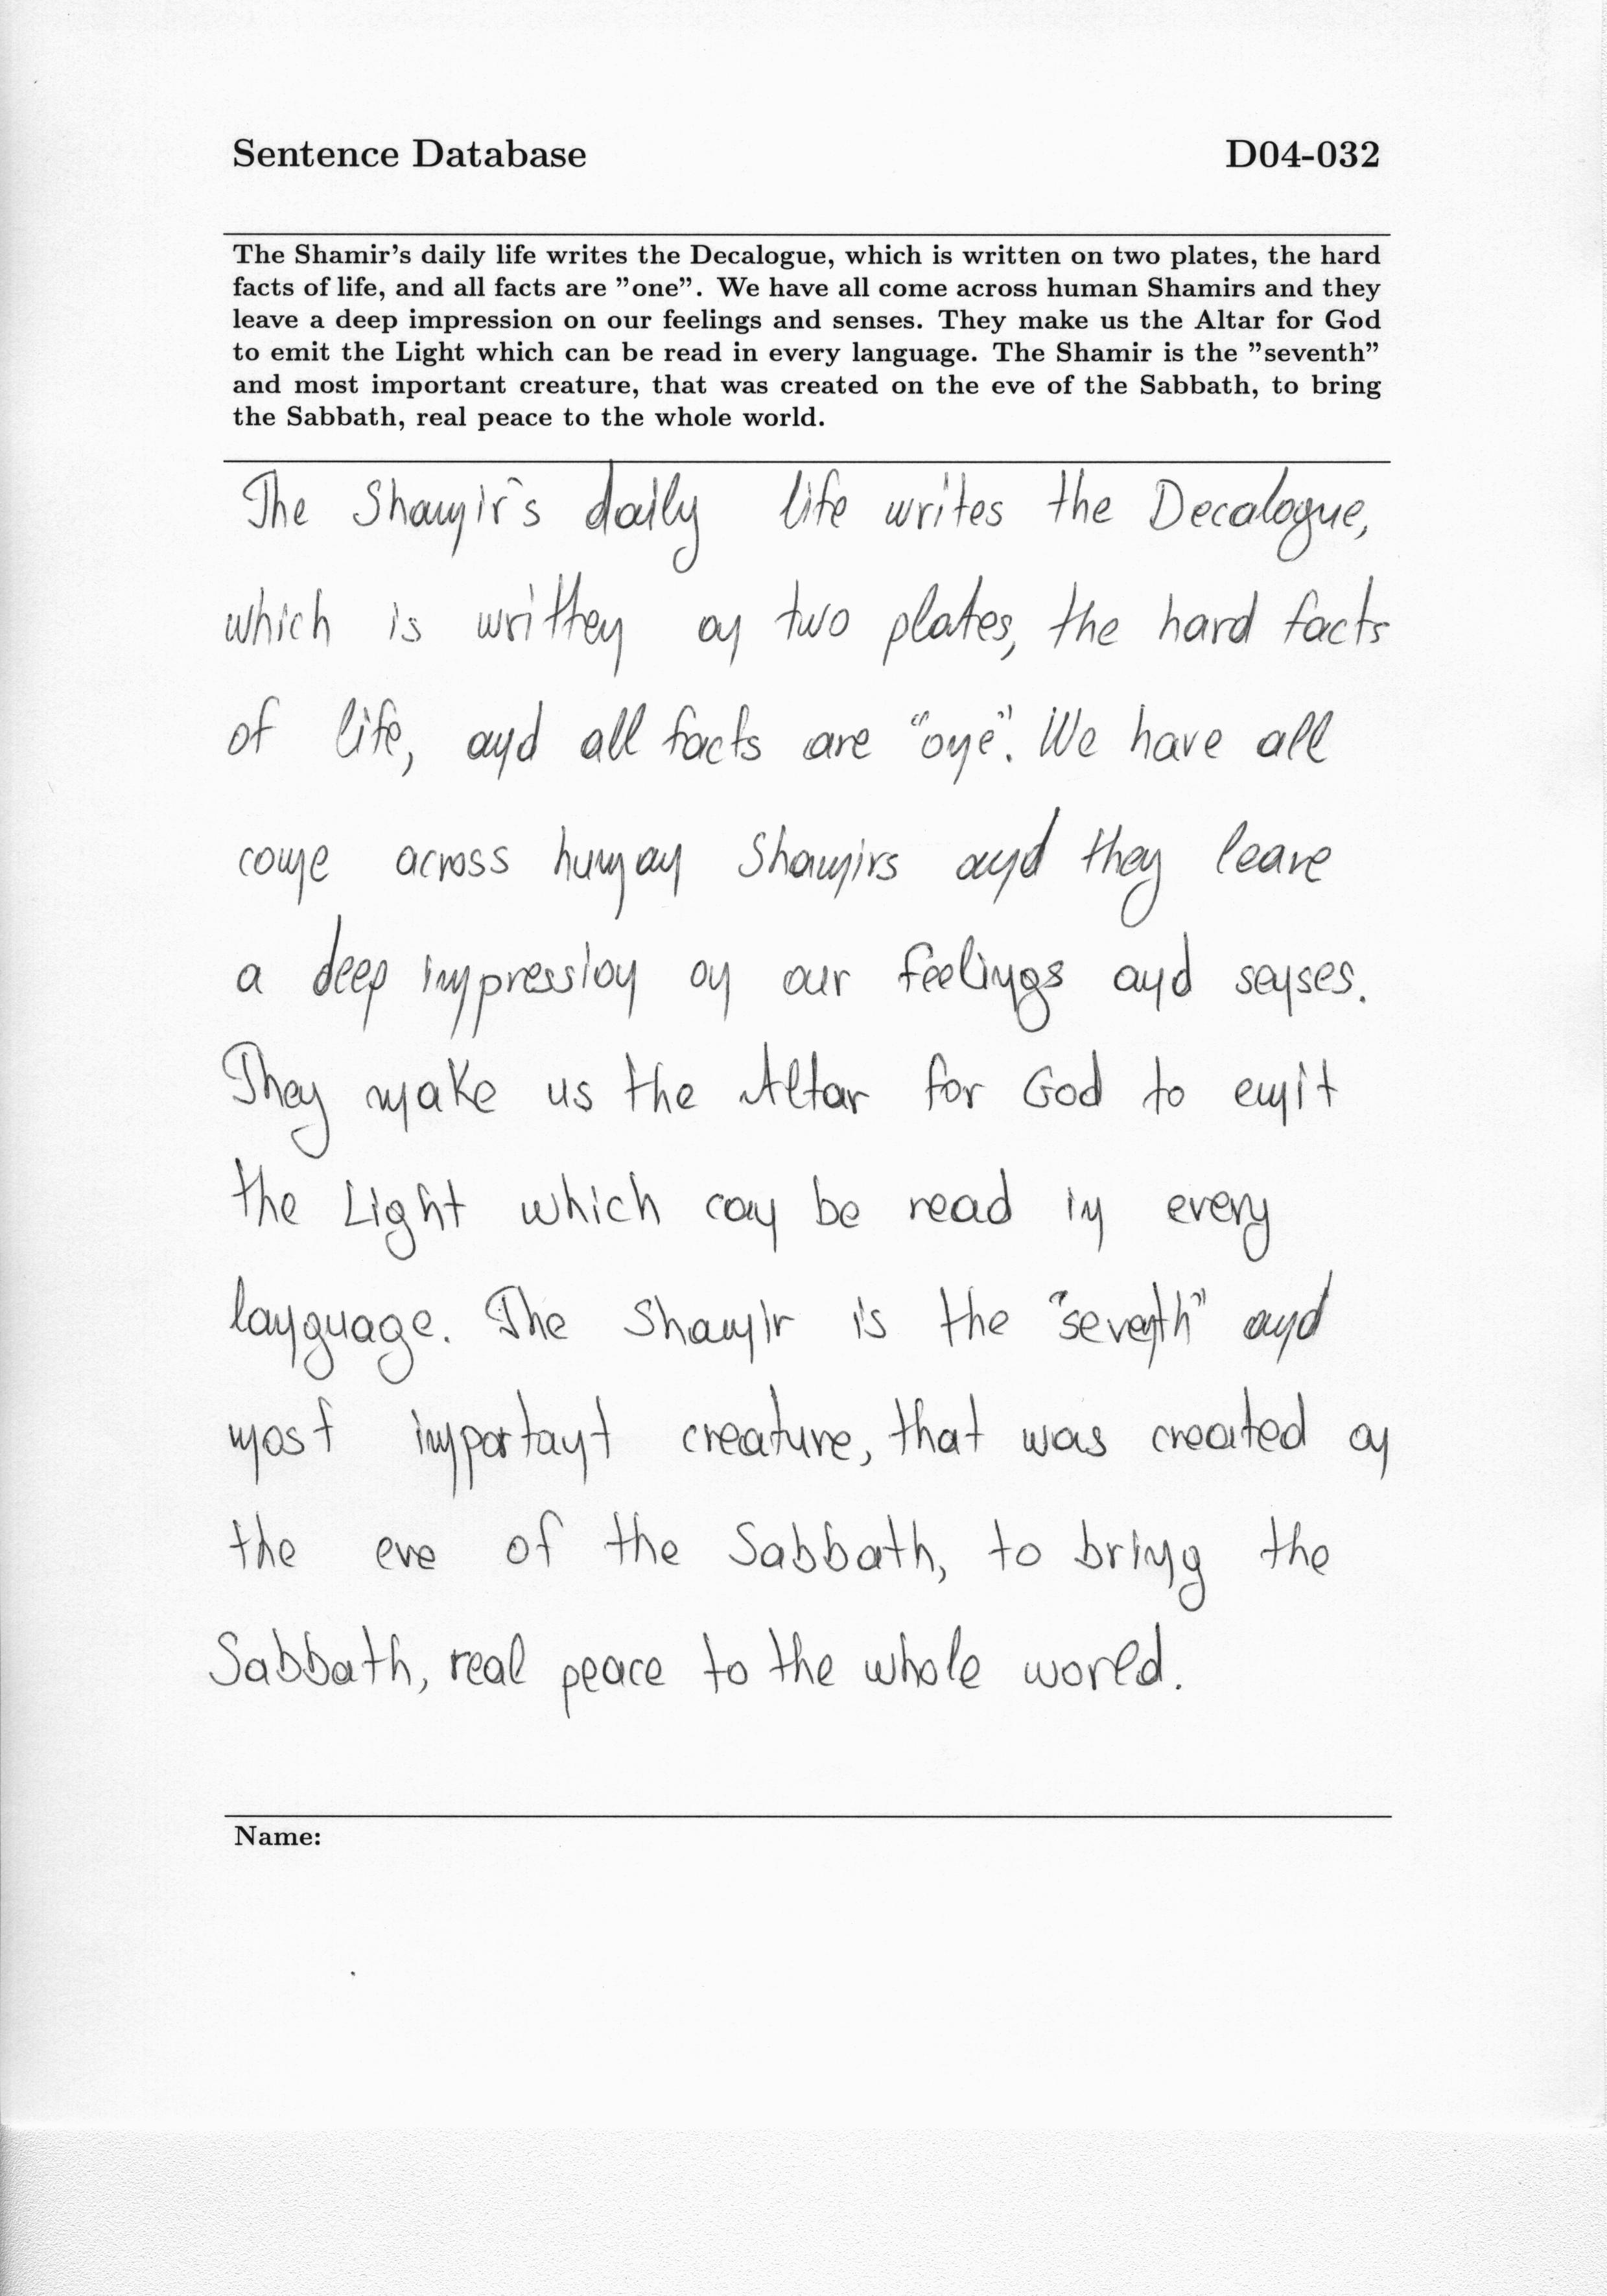 Sentence Database D04-032
The Shamir's daily life writes the Decalogue, which is written on two plates, the hard
facts of life, and all facts are ”one”. We have all come across human Shamirs and they
leave a deep impression on our feelings and senses. They make us the Altar for God
to emit the Light which can be read in every language. The Shamir is the ”seventh”
and most important creature, that was created on the eve of the Sabbath, to bring
the Sabbath, real peace to the whole world.
The Shamir's daily life writes the Decalogue,
which is written on two plates, the hard facts
of life, and all facts are “one”. We have all
come across human Shamirs and they leave
a deep impression on our feelings and senses.
They make us the Altar for God to emit
the Light which can be read in every
language. The Shamir is the “seventh” and
most important creature, that was created on
the eve of the Sabbath, to bring the
Sabbath, real peace to the whole world.
Name: